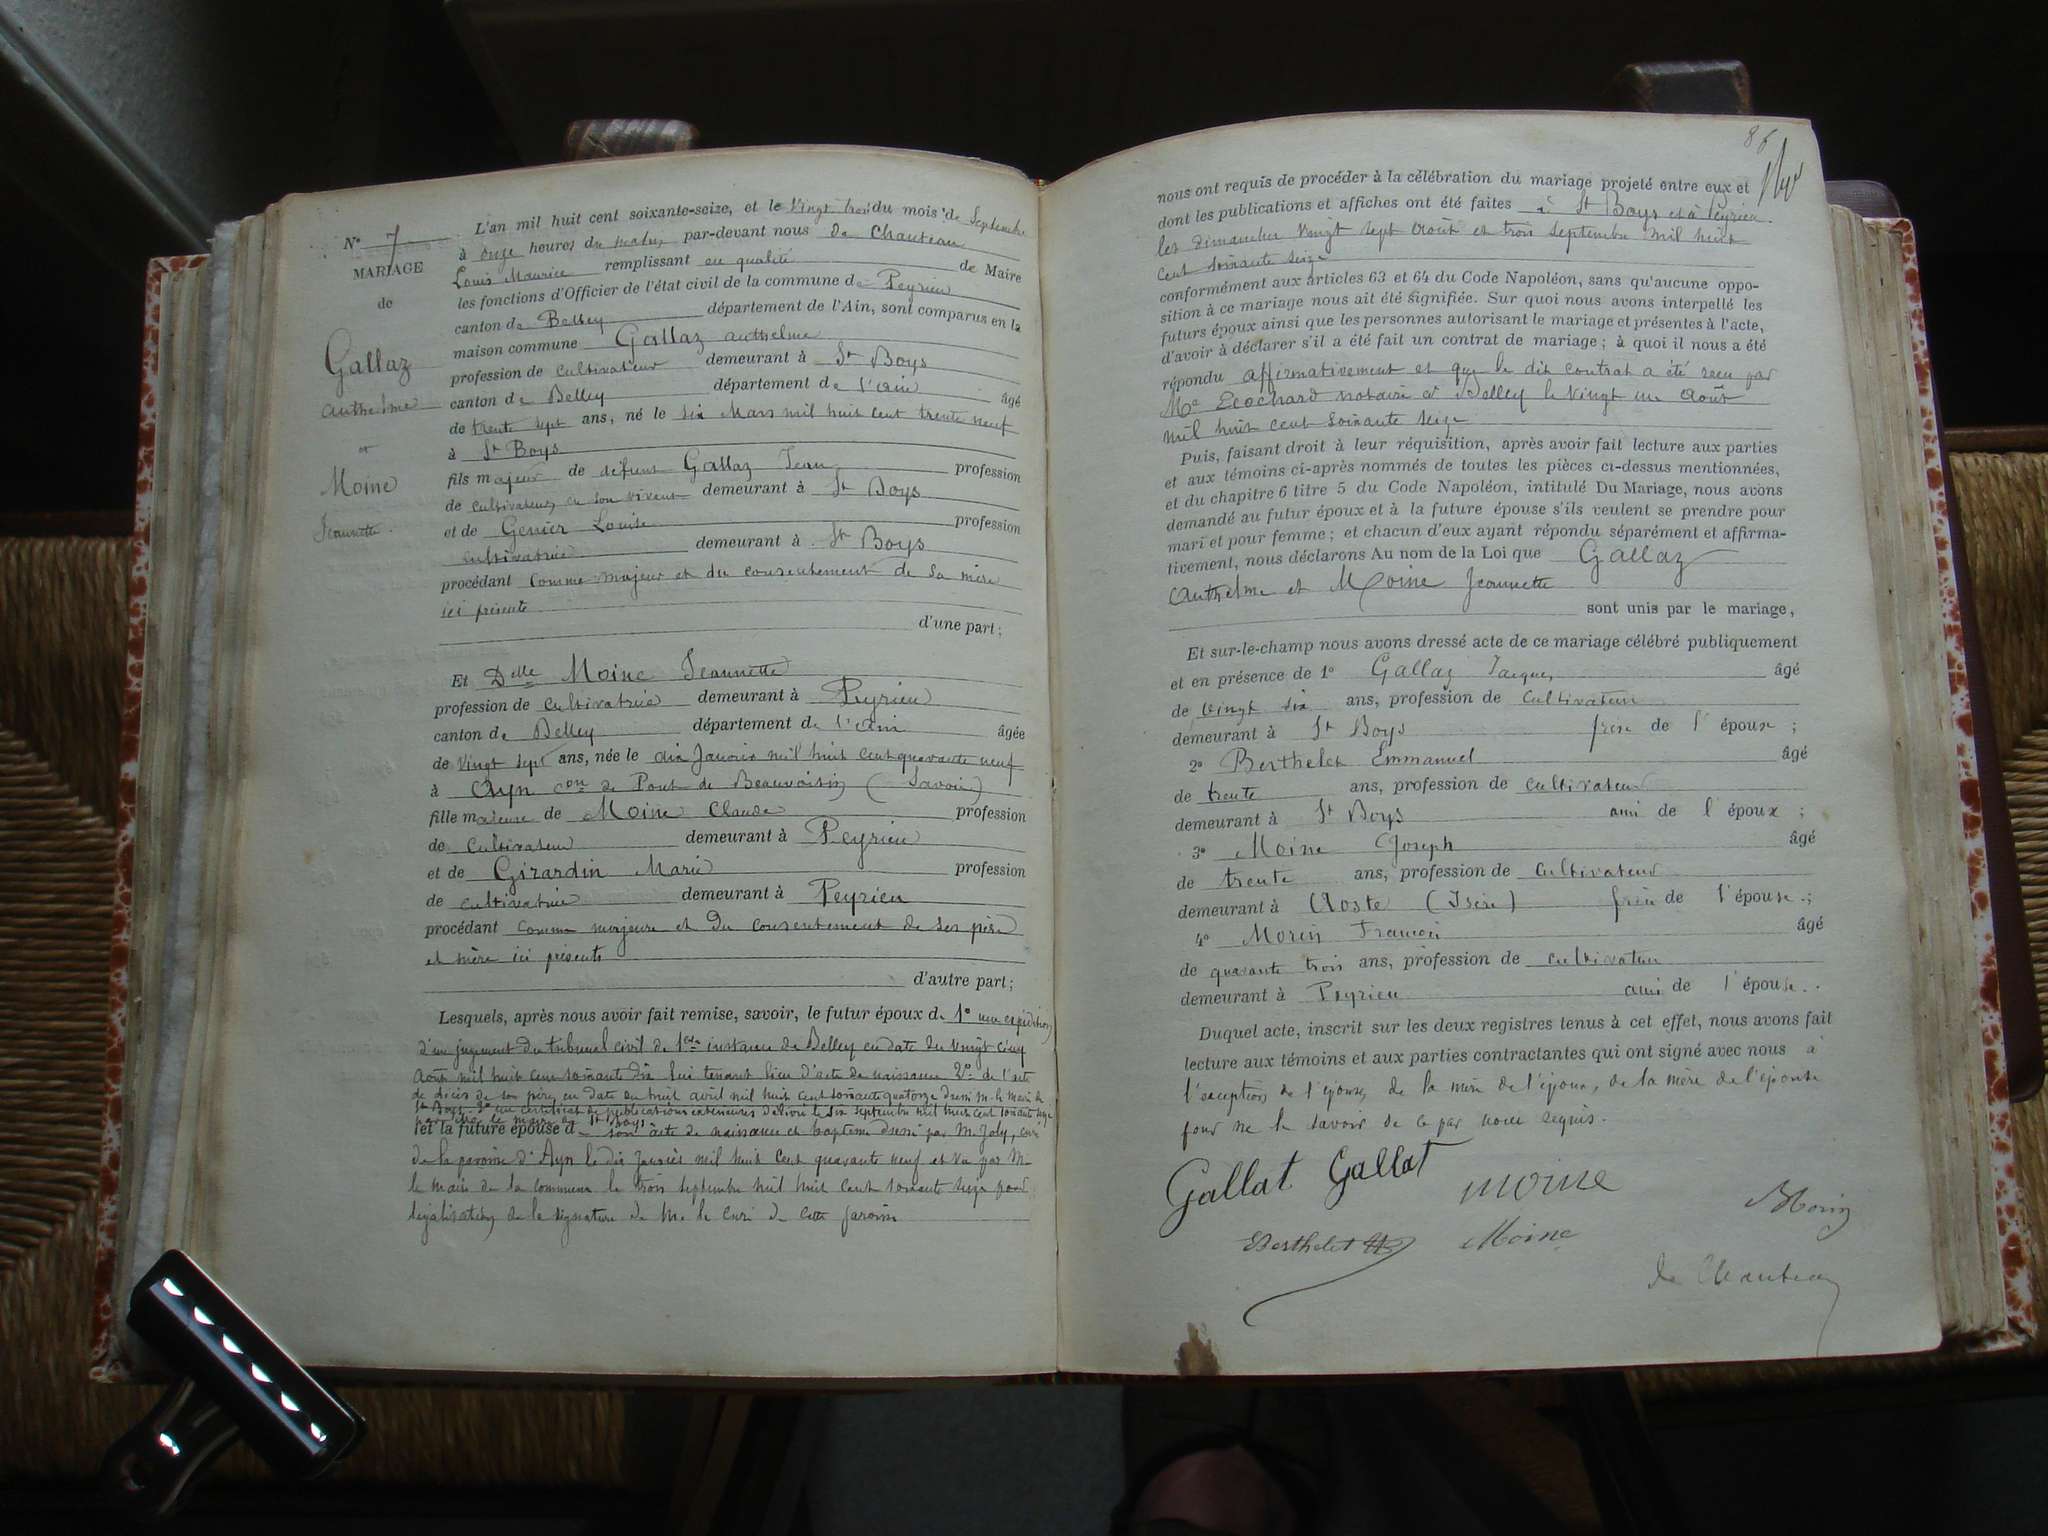 N° 7
MARIAGE
de
Gallaz
authelme
et
Moine
Jeannette.
L'an mil huit cent soixante-seize, et le vingt trois du mois de Septembre
à onze heures du matin, par-devant nous de Chanteau
Louis Maurice remplissant en qualité de Maire
les fonctions d'Officier de l'état civil de la commune de Peyrieu
canton de Belley département de l'Ain, sont comparus en la
maison commune Gallaz authelme
profession de cultivateur demeurant à St Boys
canton de Belley département de l'ain âgé
de trente sept ans, né le six Mars mil huit cent trente neuf
à St Boys
fils majeur de défunt Gallaz Jean profession
de cultivateur, en son vivant demeurant à St Boys
et de Genier Louise profession
cultivatrice demeurant à St Boys
procédant comme majeur et du consentement de sa mère
ici présente
d'une part;
Et Delle Moine Jeannette
profession de cultivatrice demeurant à Peyrieu
canton de Belley département de l'ain âgée
de vingt sept ans, née le dix Janvier mil huit cent quarante neuf
à Ayn con de Pont de Beauvoisin (Savoie)
fille majeure de Moine Claude profession
de cultivateur demeurant à Peyrieu
et de Girardin Marie profession
de cultivatrice demeurant à Peyrieu
procédant comme majeure et du consentement de ses père
et mère ici présents
d'autre part;
Lesquels, après nous avoir fait remise, savoir, le futur époux de 1° une expédition
d'un jugement du tribunal civil de 1ère instance de Belley en date du vingt cinq
août mil huit cent soixante dix lui tenant lieu d'acte de naissance 2° de l'acte
de décès de son père, en date du huit avril mil huit cent soixante quatorze dressé M. le maire de
St Boys. 3° un certificat de publications extérieures délivré le six septembre mil huit cent soixante seize
par M. le maire de St Boys
et la future épouse d son acte de naissance et baptême dressé par M. Joly, curé
de la paroisse d'Ayn le dix janvier mil huit cent quarante neuf et vu par M.
le maire de la commune le trois septembre mil huit cent soixante seize pour
légalisation de la signature de M. le curé de cette paroisse
86
nous ont requis de procéder à la célébration du mariage projeté entre eux et
dont les publications et affiches ont été faites à St Boys et à Peyrieu.
les dimanches vingt sept août et trois septembre mil huit
cent soixante seize
conformément aux articles 63 et 64 du Code Napoléon, sans qu'aucune oppo-
sition à ce mariage nous ait été signifiée. Sur quoi nous avons interpellé les
futurs époux ainsi que les personnes autorisant le mariage et présentes à l'acte,
d'avoir à déclarer s'il a été fait un contrat de mariage; à quoi il nous a été
répondu affirmativement et que le dit contrat a été recu par
Me Ecochard notaire à Belley le vingt un août
mil huit cent soixante seize
Puis, faisant droit à leur réquisition, après avoir fait lecture aux parties
et aux témoins ci-après nommés de toutes les pièces ci-dessus mentionnées,
et du chapitre 6 titre 5 du Code Napoléon, intitulé Du Mariage, nous avons
demandé au futur époux et à la future épouse s'ils veulent se prendre pour
mari et pour femme; et chacun d'eux ayant répondu séparément et affirma-
tivement, nous déclarons Au nom de la Loi que Gallaz
Authelme et Moine Jeannette
sont unis par le mariage,
Et sur-le-champ nous avons dressé acte de ce mariage célébré publiquement
et en présence de 1° Gallaz Jacques, âgé
de vingt six ans, profession de cultivateur
demeurant à St Boys frère de l'épouse;
2° Berthelet Emmanuel âgé
de trente ans, profession de cultivateur
demeurant à St Boys ami de l époux;
3° Moine Joseph âgé
de trente ans, profession de cultivateur
demeurant à Aoste (Isère) frère de l'épouse.;
4° Morin Francois âgé
de quarante trois ans, profession de cultivateur
demeurant à Peyrieu ami de l'épouse..
Duquel acte, inscrit sur les deux registres tenus à cet effet, nous avons fait
lecture aux témoins et aux parties contractantes qui ont signé avec nous à
l'exception de l'épouse, de la mère de l'époux, de la mère de l'épouse
pour ne le savoir de ce par nous requis.
Gallat Gallat moine
Morin
Berthelet Moine
de Chanteau